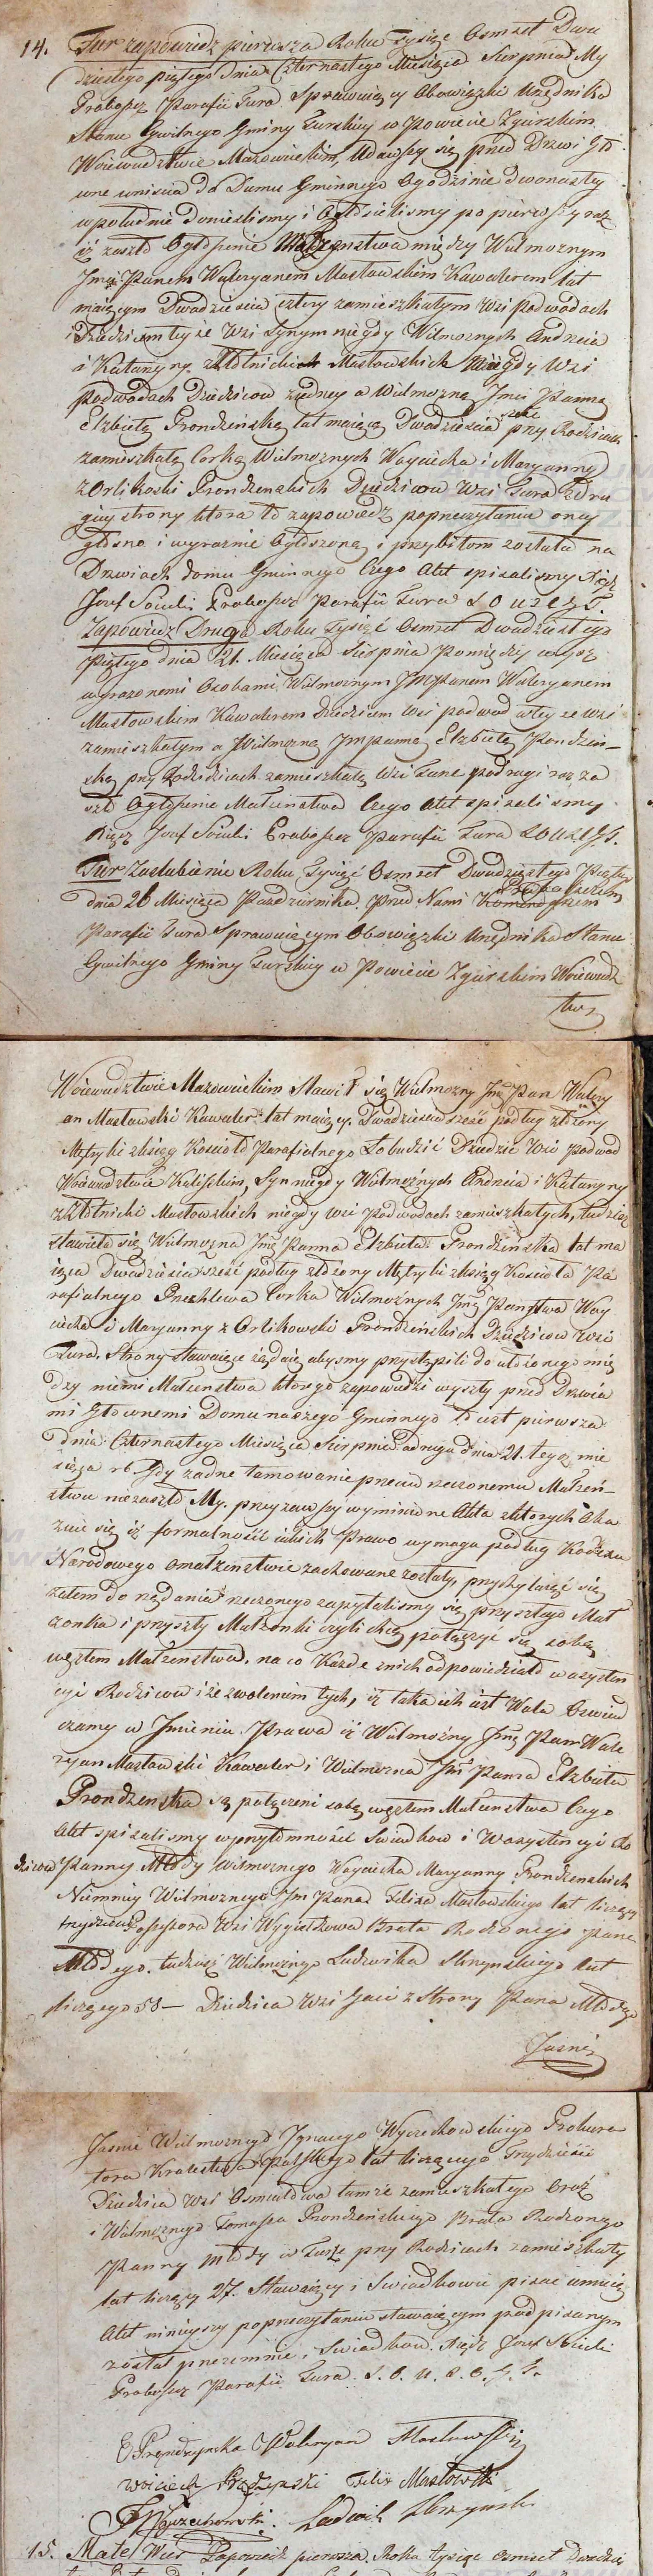 14. Tur zapowiedz pierwsza Roku Tysiąc Osmset Dwu
dziestego piątego dnia Czternastego Miesiąca Sierpnia My
Proboszcz Parafii Tura Sprawuiący Obowiązki Urzędnika
Stanu Cywilnego Gminy Turskiey w Powiecie Zgierskim
Woiewodztwie Mazowieckim, Udawszy się przed Drzwi Gło
wne wniścia do Domu Gminnego O godzinie dwonasty
wpołudnie Donieslismy i Ogłosilismy po pierwszy raz
iż zaszło Ogłoszenie Małżeństwa między Wielmoznym
Jmć Panem Waleryanem Masłowskim Kawalerem lat
maiącym Dwadziescia cztery zamieszkałym Wsi podwodach
i Dziedzicem teyże Wsi Synym niegdy Wilmoznych Andrzeia
i Katarzyny z Kłotnickich Masłowskich Niegdy Wsi
Podwodach Dziedzicow zedney a Wielmozną Jmci Panną
Elzbietą Prondzeńską lat maiącą Dwadziescia sześć przy Rodzicach
zamieszkałą Corką Wielmoznych Woyciecha i Maryanny
z Orlikoski Prondzenskich Dziedzicow Wsi Tura Zdru
giey strony ktora to zapowiedz poprzeczytaniu oney
głosno i wyraznie Ogłoszoną i przybitom została na
Drzwiach domu Gminnego Czego Akt spisalismy Xiądz
Jozef Soiecki Proboszcz Parafii Tura
Zapowiedz Druga Roku Tysiąć Osmset Dwudziestego
Piątego dnia 21. Miesiąca Sierpnia Pomiędzy wyzey
wyrazonemi Osobami Wielmoznym JmPanem Waleryanem
Masłowskim Kawalerem Dziedzicem Wsi podwod wtey ze wsi
zamieszkałym a Wielmozną Jmpanną Elzbietą Prondzeń-
ską przy Rodzicach zamieszkałą Wsi Turze podrugi raz za
szło Ogłoszenie Małzenstwa Czego Akt spisalismy
Xiądz Jozef Soiecki Proboszcz Parafii Tura
Tur Zaslubienie Roku Tysiąć Osmset Dwudziestego Piątego
dnia 26 Miesiąca Pazdziernika. Przed Nami Proboszczem
Parafii Tura Sprawuiącym Obowiązki Urzędnika Stanu
Cywilnego Gminy Turskiey w Powiecie Zgierskim Woiewodz
twie
Woiewudztwie Mazowieckim Stawił się Wielmozny Jmć Pan Walery
an Masłowski Kawaler lat maiący Dwadziescia sześć podług złożony
Metryki zksięg Kościoła Parafialnego Dziedzic Wsi podwod
Woiewodztwie Kaliskim, Syn niegdy Wielmoznych Andrzeia i Katarzyny
z Kłotnicki Masłowskich niegdy wsi Podwodach zamieszkałych, tudziez
stawiła się Wielmozna Jmć Panna Elzbieta Prondzeńska lat ma
iąca Dwadziescia sześć podług złożony Metryki zksięg Kościoła Pa
rafialnego Corka Wielmoznych Jmć Państwa Woy
ciecha i Maryanny z Orlikowski Prondzeńskich Dziedzicow Wsi
Tura. Strony stawaiące żądaią abysmy przystąpili do ułożonego mię
dzy niemi Małzenstwa ktorego zapowiedzi wyszły przed Drzwia
mi Głownemi Domu naszego Gminnego To iest pierwsza
dnia Czternastego Miesiąca Sierpnia a druga dnia 21. tegoz mie
siąca rb. Gdy zadne tamowanie przeciw rzeczonemu Małżeń-
stwu niezaszło My. przeyrzawszy wyminione Akta zktorych oka
zuie się iż formalność iakich Prawo wymaga podług Kodexu
Narodowego omałzenstwie zachowane zostały, przychylaiąć się
zatem do rządania rzeczonego zapytalismy się przyszłego Mał
zonka i przyszły Małzonki czyli chcą połączyć się sobą
węzłem Małzenstwa, na co Kazde znich odpowiedziało wasysten
cyi Rodzicow i zezwoleniem tych, iż taka ich iest Wola Oswiad
czamy w Jmieniu Prawa iż Wielmozny Jmć Pan Wale
ryan Masławski Kawaler i Wielmozna Jmć Panna Elzbieta
Prondzenska są połączeni sobą węzłem Małzenstwa Czego
Akt spisalismy wprzytomności Swiadkow i Wasystencyi Ro
dzicow Panny Młody Wielmoznego Woyciecha Maryanny Prondzenskich
Niemniey Wilmoznego Jm Pana Felixa Masłowskiego lat liczący
trzydzieści Possesora Wsi Wygiełzowa Brata Rodzonego Pana
Młodego. tudzież Wielmoznego Ludwika Skrzynskiego lat
liczącego 58 – Dziedzica Wsi z Strony Pana Młodego
Jasnie
Jasnie Wielmoznego Jgnacego Wyczechowskiego Prokura
tora Krolestwa Polskiego lat liczącego Trzydzieści
Dziedzica Wsi Osmulstwa tamże zamieszkałego Oraz
i Wielmoznego Tomasza Prondzeńskiego Brata Rodzonego
Panny młody w Turze przy Rodzicach zamieszkały
lat liczący 27. Stawaiący i Swiadkowie pisać umieią
Akt ninieyszy poprzeczytaniu stawaiącym podpisanym
został przezemnie i Swiadkow. Xiądz Jozef Soiecki
Proboszcz Parafii Tura. S. O. U. S. C. G. T.
E Prądzynska Waleryan Masłowski
Woiciech Prądzynski Felix Masłowski
JWyczechowski. Ludwik Skrzynski
15. Mate Wieś Zapowiedz pierwsza. Roku tysiąc osmset Dwadzie